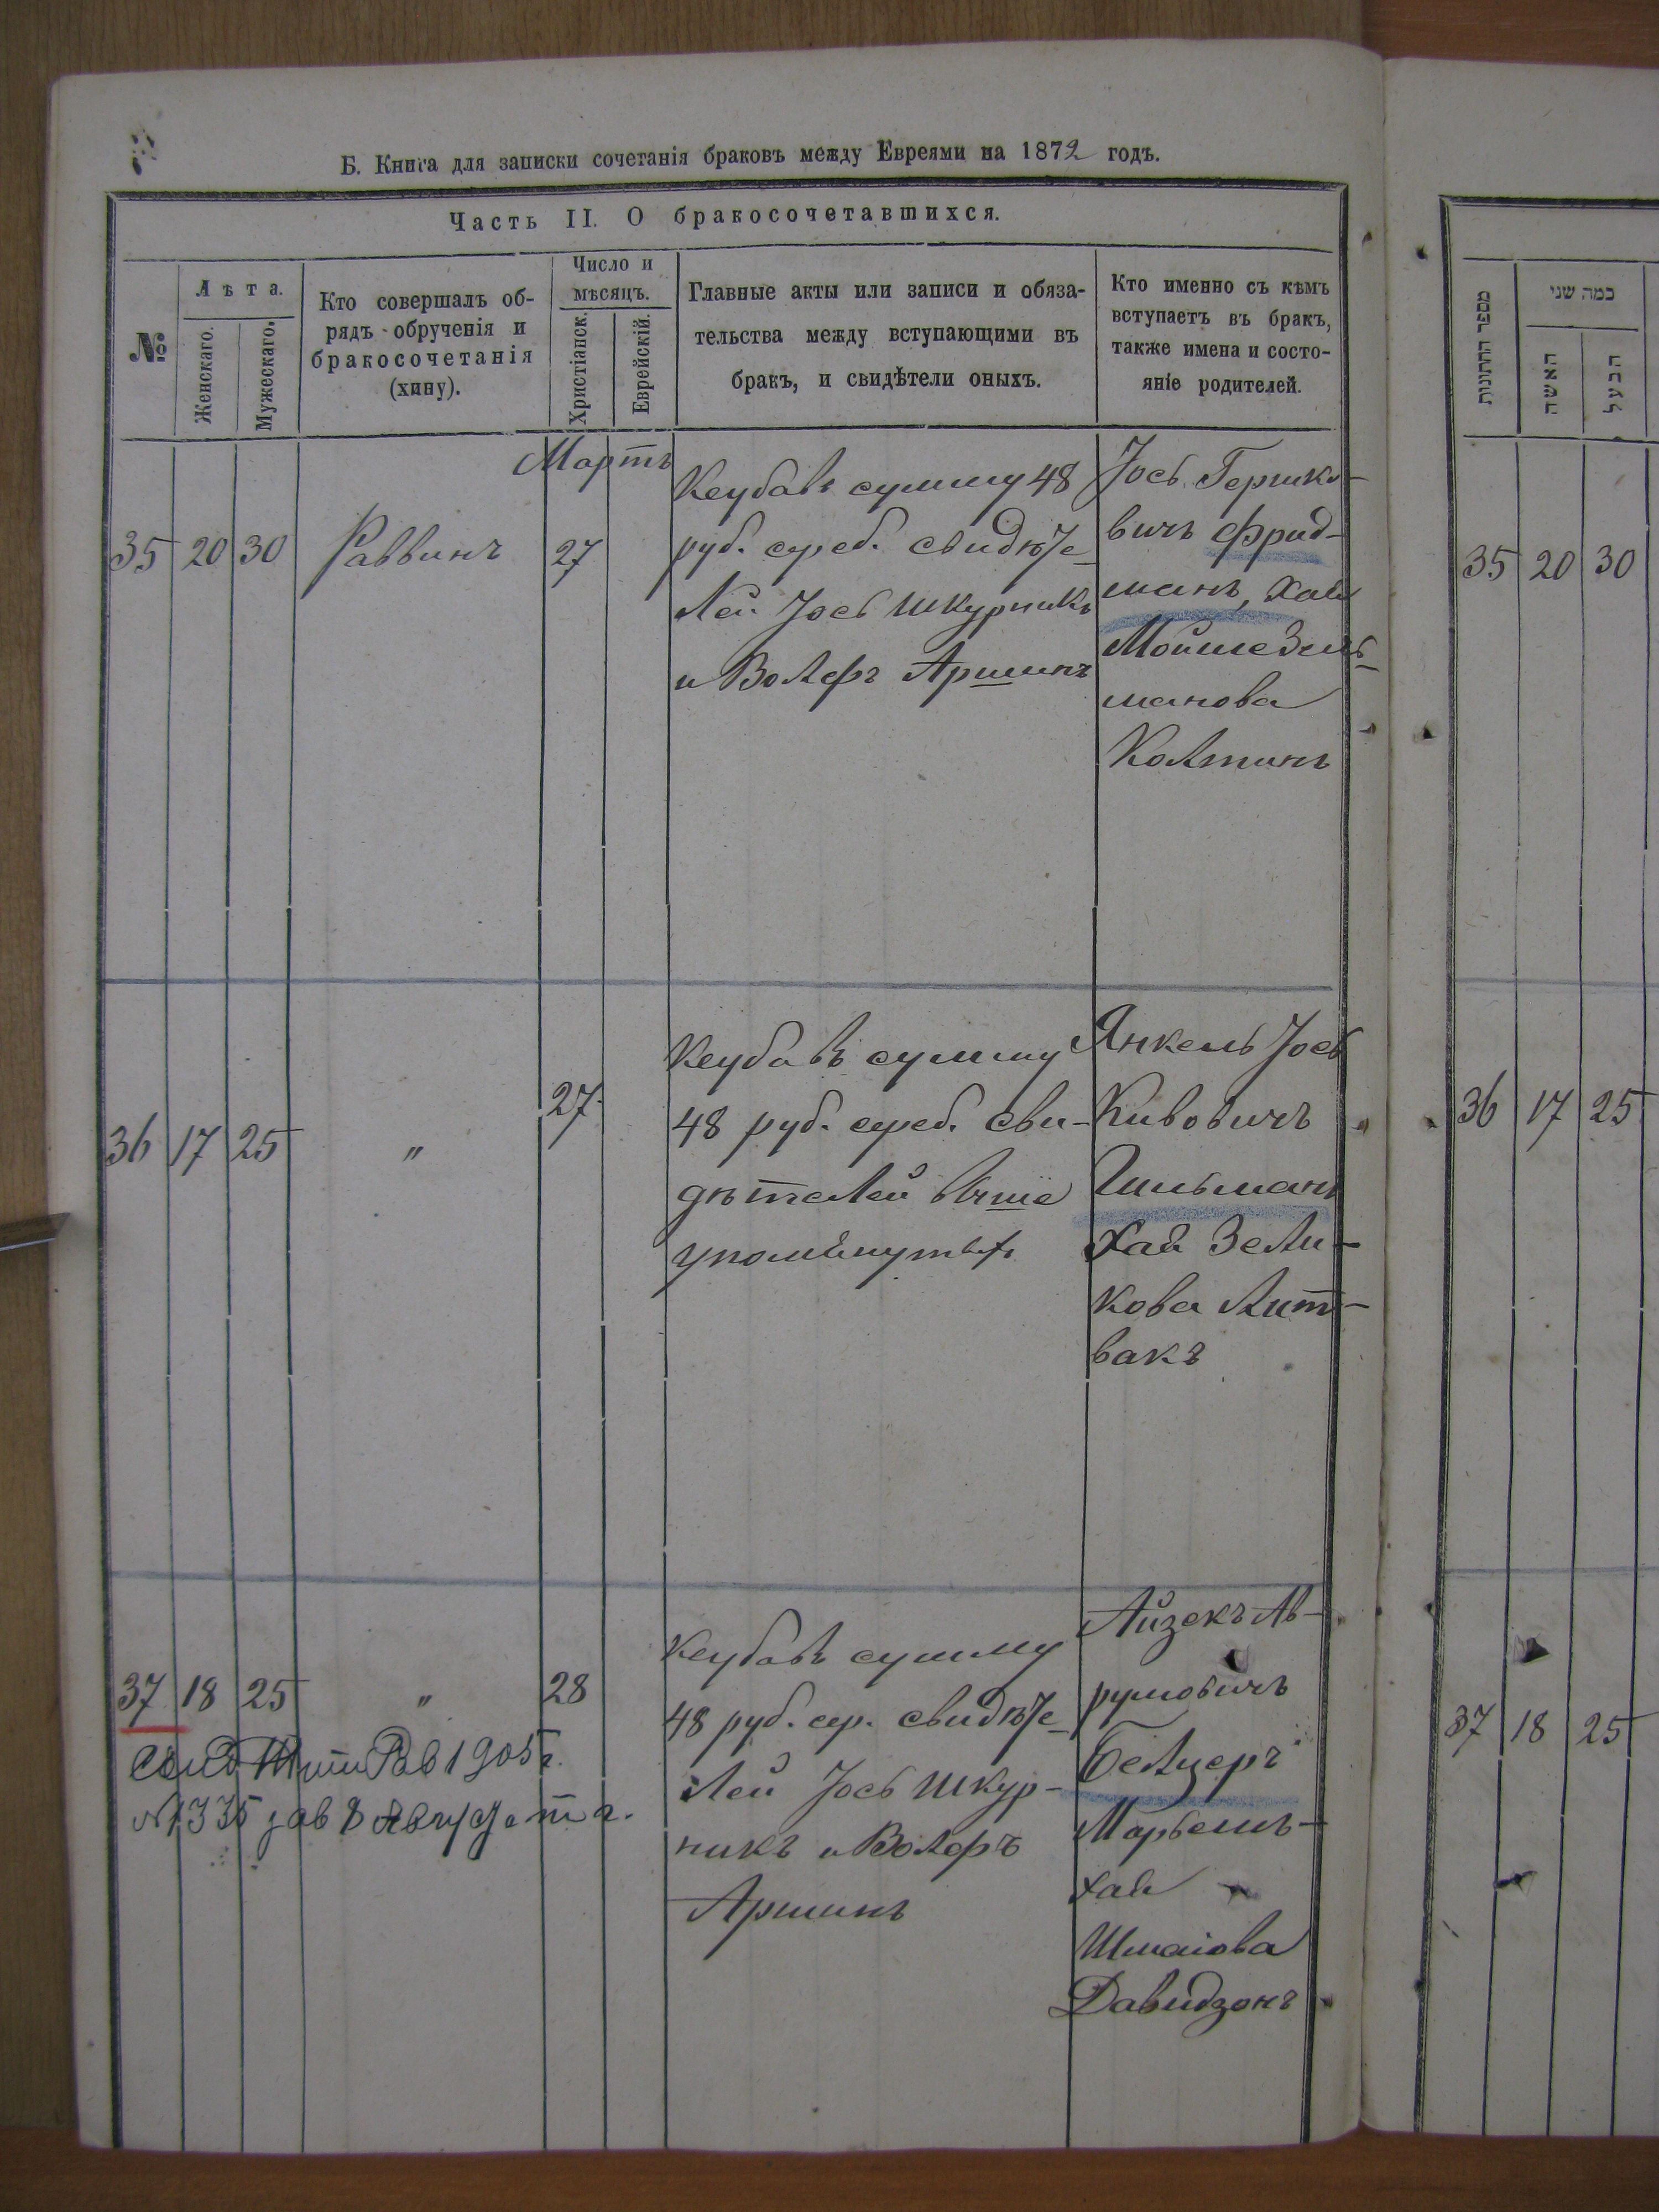 Б. Книга для записки сочетанія браковъ между Евреями на 1872 годъ.
Часть II. О бракосочетавшихся.
№
Лѣта.
Женскаго.
Мужескаго.
Кто совершалъ об-
рядъ обрученія и
бракосочетанія
(хипу).
Число и
мѣсяцъ.
Христіанск.
Еврейскій.
Главные акты или записи и обяза-
тельства между вступающими въ
бракъ, и свидѣтели оныхъ.
Кто именно съ кѣмъ
вступаетъ въ бракъ,
также имена и состо-
яніе родителей.
Мартъ
35 20 30 Раввинъ 27
Кеубавъ сумму 48
руб. сереб. свидѣте-
лей Іось Шкурникъ
и Волфъ Аршинъ
Іось Гершко-
вичъ Фрид-
манъ, Хая
Мойше Зель-
манова
Колтинъ
36 17 25 " 27
Кеубавъ сумму
48 руб. сереб. сви-
дѣтелей выше
упомянутыхъ
Янкель Іось
Кивовичъ
Гильманъ
Хая Зели-
кова Лит-
вакъ
37 18 25 " 28
Кеубавъ сумму
48 руб. сер. свидѣте-
лей Іось Шкур-
никъ и Волфъ
Аршинъ
Айзекъ Ав-
румовичъ
Белцеръ
Марьемъ-
Хая
Шмаіова
Давидзонъ
Рав 1905 г.
№ 1335 8 Августа
מספר החתונות
כמה שני
האשה
הבעל
35 20 30
36 17 25
37 18 25